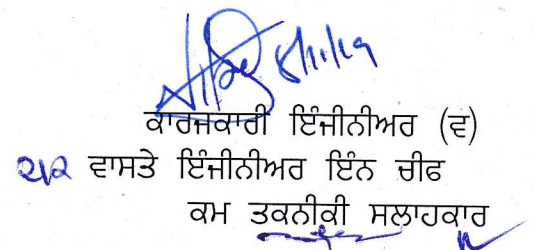 ਕਾਰਜਕਾਰੀ ਇੰਜੀਨੀਅਰ (ਵ)
ਵਾਸਤੇ ਇੰਜੀਨੀਅਰ ਇੰਨ ਚੀਫ
ਕਮ ਤਕਨੀਕੀ ਸਲਾਹਕਾਰ